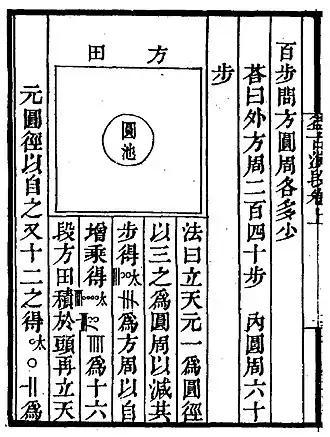 百步問方圓周各多少
荅曰外方周二百四十步　內圓周六十
步
方田
圓池
法曰立天元一爲圓徑
以三之爲圓周以減其
步得太爲方周以自
增乘得太爲十六
段方田積於頭再立天
元圓徑以自之又十二之得太爲